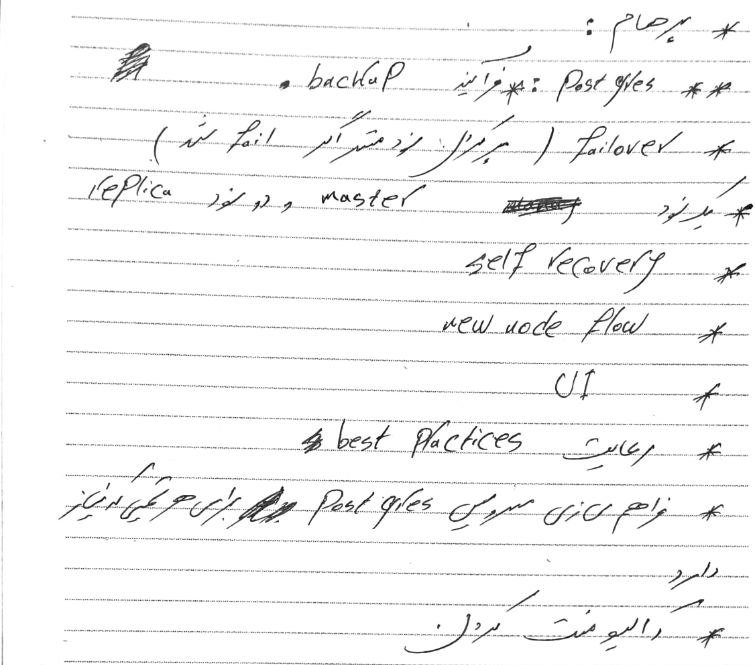 * پرهام :
** Postgres : * فرآیند backup .
* failover ( پر کردن نود مستر اگر fail شد )
* یک نود master و دو نود replica
* self recovery
* new node flow
* UI
* رعایت best practices
* فراهم سازی سرویس Postgres برای هر تیمی که نیاز
دارد
* داکیومنت کردن.